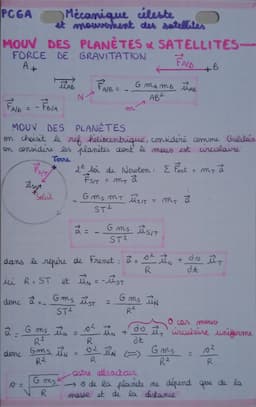 PCGA Mécanique céleste
et mouvement des satellites
MOUV DES PLANÈTES & SATELLITES
FORCE DE GRAVITATION
A F⃗A/B B
u⃗AB F⃗A/B = - G mA mB / AB² u⃗AB
F⃗A/B = - F⃗B/A N m
MOUV DES PLANÈTES
on choisit le ref héliocentrique, considéré comme Galiléen
on considère les planètes dont le mouv est circulaire
Terre
2e loi de Newton : Σ F⃗ext = mT a⃗
F⃗S/T = mT a⃗
Soleil
- G mS mT / ST² u⃗S/T = mT a⃗
a⃗ = - G mS / ST² u⃗S/T
dans le repère de Frenet : a⃗ = v²/R u⃗N + dv/dt u⃗T
ici R = ST et u⃗N = - u⃗ST
donc a⃗ = - G mS / ST² u⃗ST = G mS / R² u⃗N
0 car mouv
circulaire uniforme
a⃗ = G mS / R² u⃗N = v²/R u⃗N + dv/dt u⃗T
donc G mS / R² u⃗N = v²/R u⃗N ⇔ G mS / R² = v²/R
astre attracteur
v = √(G mS / R) → v de la planète ne dépend que de la
masse et de la distance